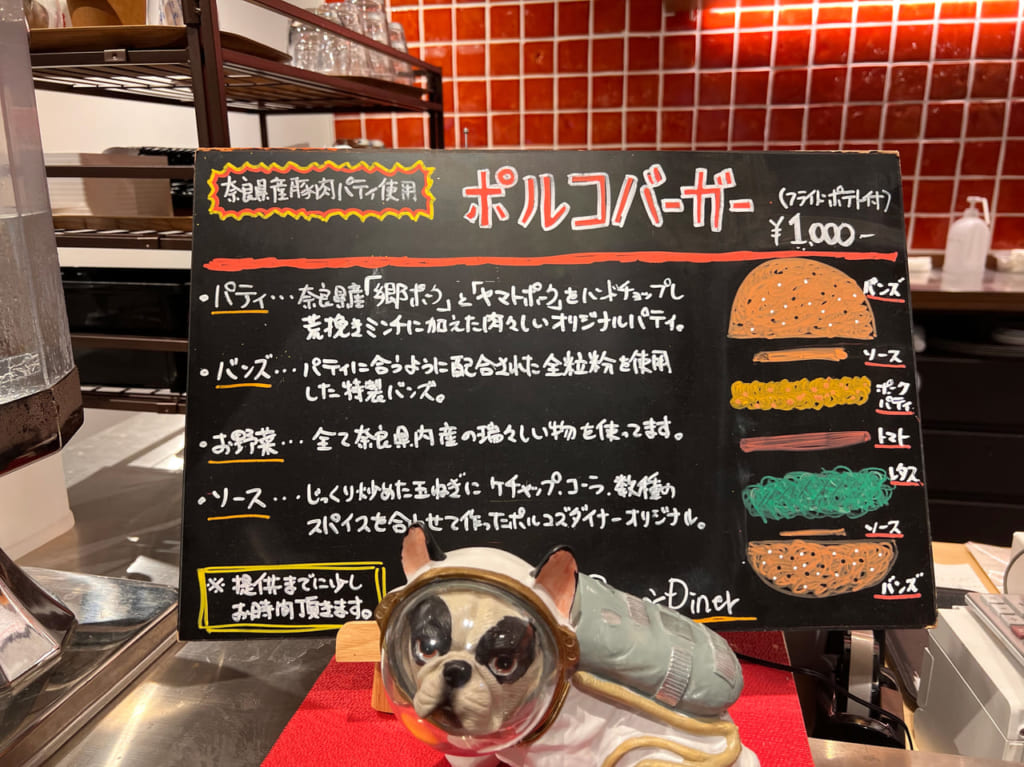 奈良県産豚肉パティ使用
ポルコバーガー
(フライドポテト付)
¥1,000-
・パティ…奈良県産「郷ポーク」と「ヤマトポーク」をハンドチョップし
荒挽きミンチに加えた肉々しいオリジナルパティ。
・バンズ…パティに合うように配合された全粒粉を使用
した特製バンズ。
・お野菜…全て奈良県内産の瑞々しい物を使ってます。
・ソース…じっくり炒めた玉ねぎにケチャップ、コーラ、数種の
スパイスを合わせて作ったポルコズダイナーオリジナル。
※提供までに少し
お時間頂きます。
Diner
バンズ
ソース
ポーク
パティ
トマト
レタス
ソース
バンズ